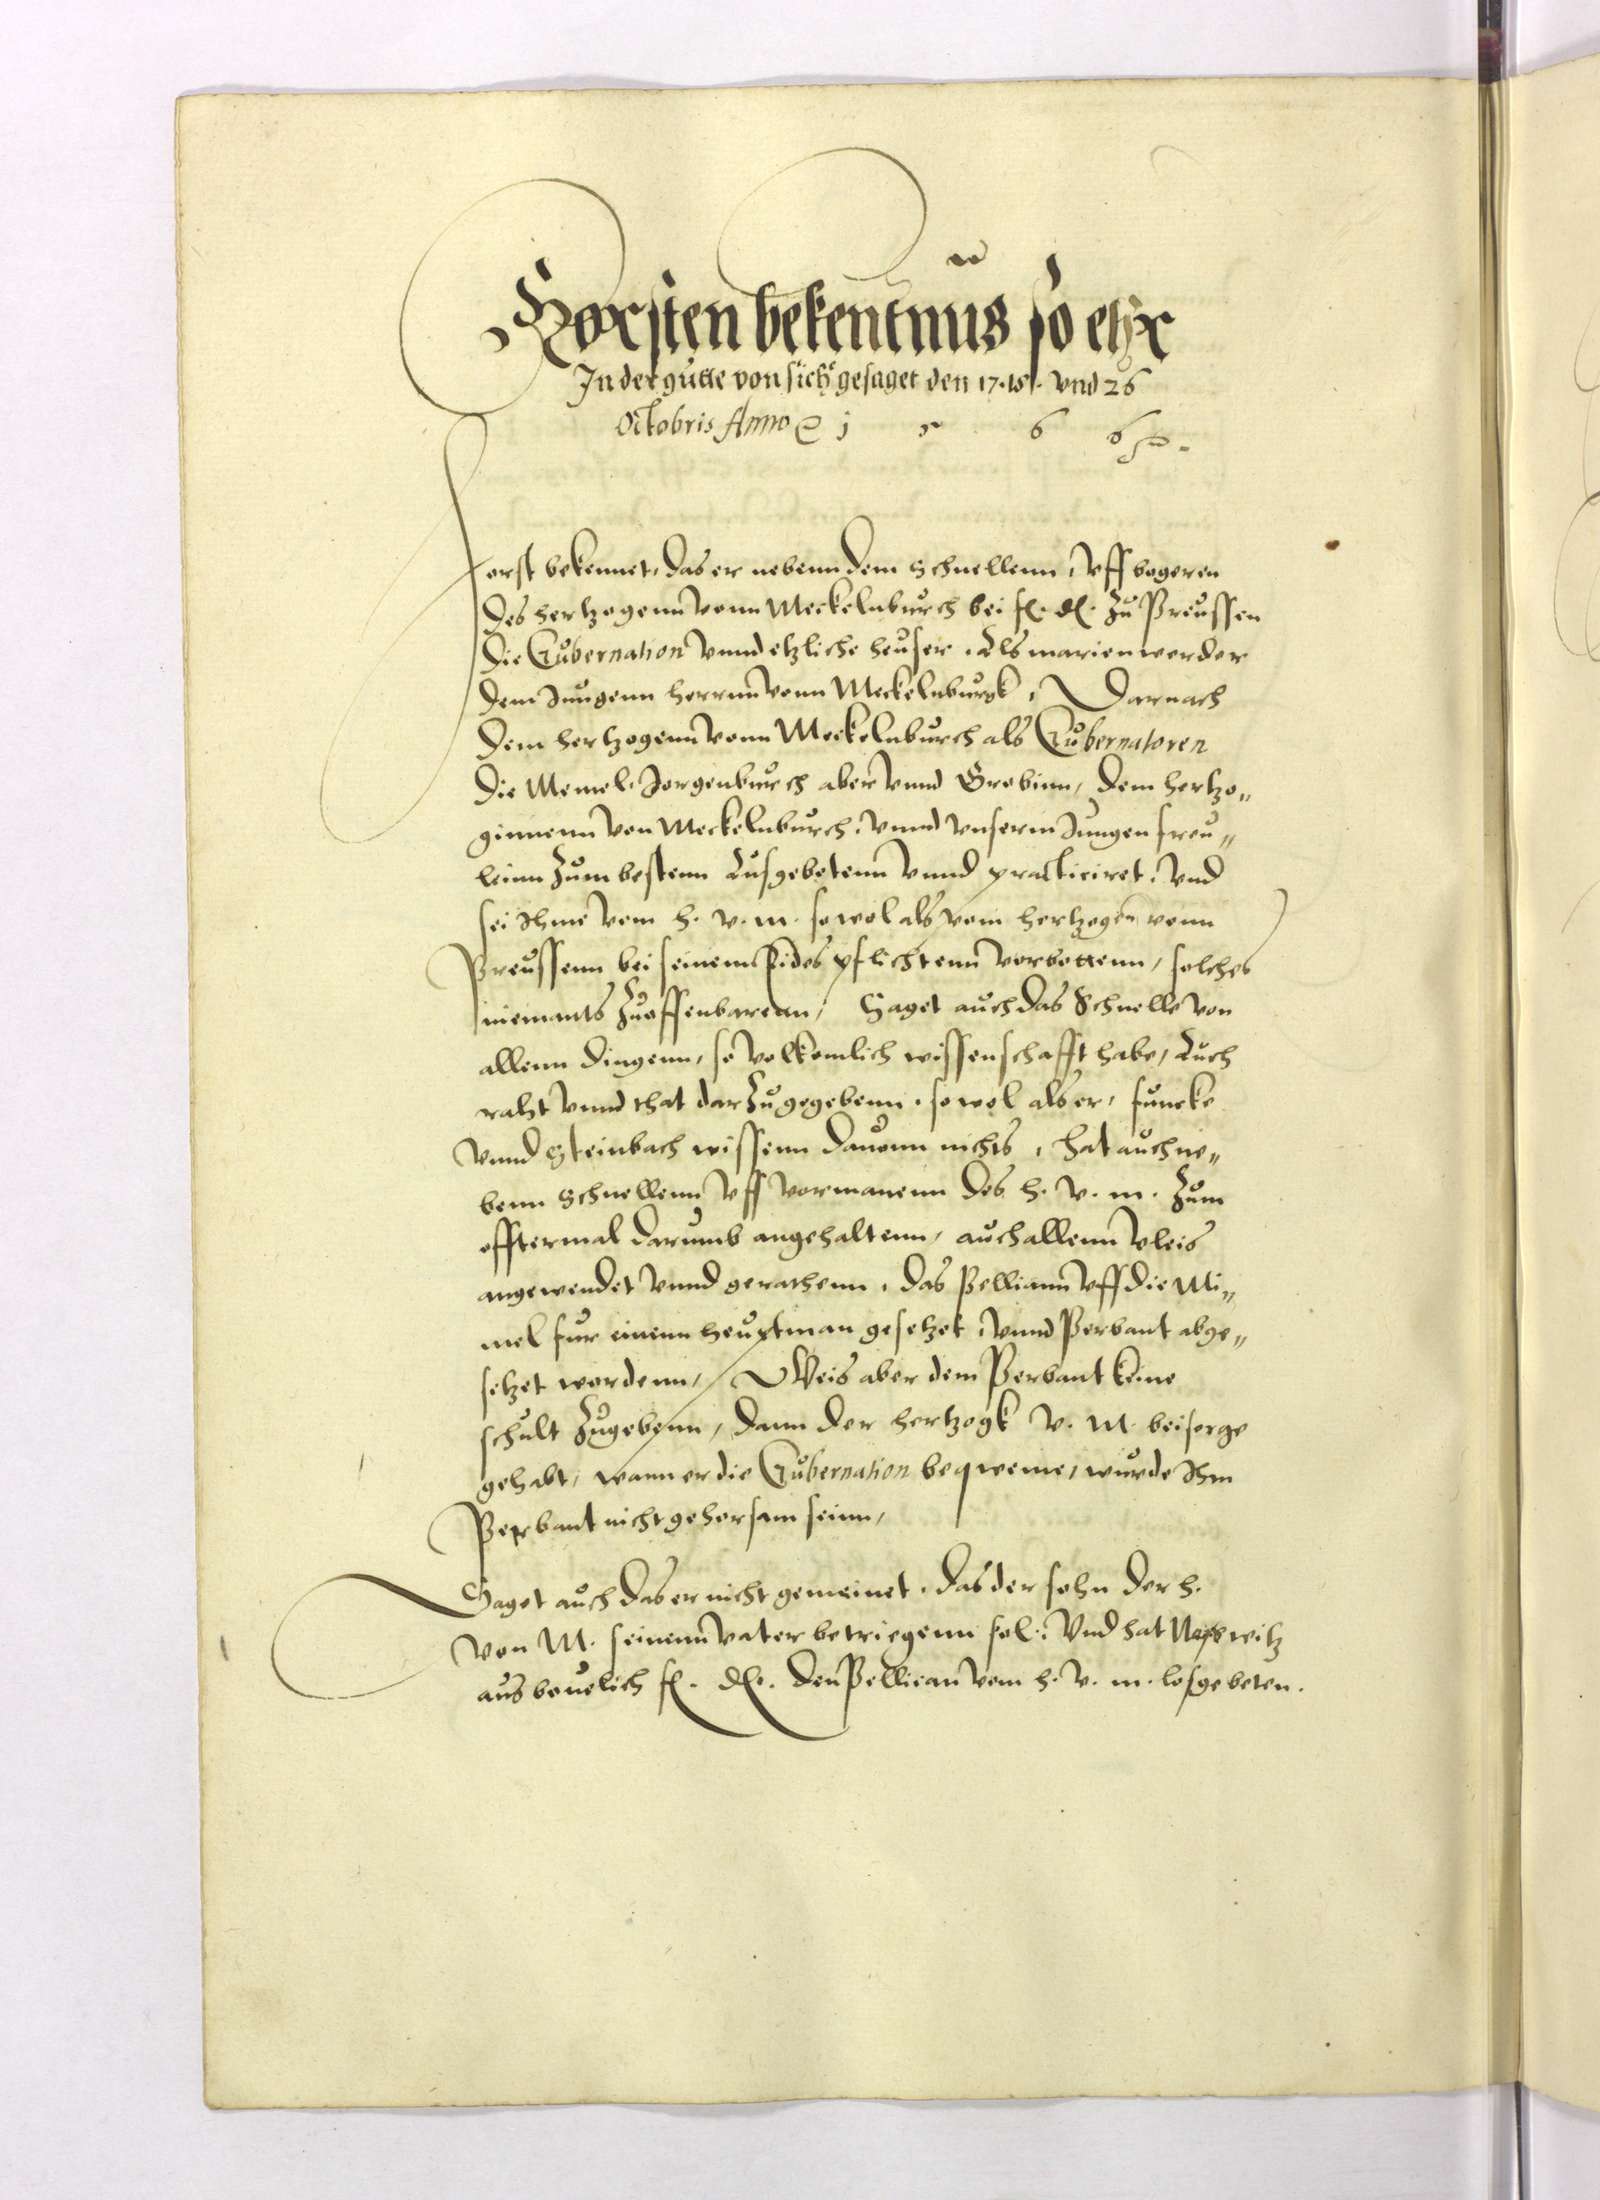 Horsten bekentnus so ehr
In der gutte von sich gesaget den 17. 18. vnd 26
Octobris Anno 1 5 6 6
Horst bekennet, das er nebenn dem Schnellenn, vff begeren
des hertzogenn vonn Meckelnburch bei f. d. zu Preussen
die Gubernation vnnd etzliche heuser, Als marienwerder
dem Jungenn herrnn vonn Meckelnburgk, Darnach
dem hertzogenn vonn Meckelnburch als Gubernatoren
die Memel, Jorgenburch aber vnnd Grobinn, dem hertzo„
ginnenn von Meckelnburch, vnnd vnserm Jungen freu„
leinn zum bestenn Ausgebetenn vnnd practiciret, vnd
sei Ihme vom h. v. m. so wol als vom hertzogen vonn
Preussenn bei seinem Eides pflichtenn vorbottenn, solches
niemants zuoffenbarenn, Saget auch das Schnelle von
allenn dingenn, so volkomlich wissenschafft habe, Auch
raht vnnd that darzu gegebenn, so wol als er, funcke
vnnd Steinbach wissenn dauonn nichts, hat auch ne„
benn Schnellenn vff vormanenn des h. v. m. zum
offtermal darumb angehaltenn, auch allenn vleis
angewendet vnnd gerathenn, das Pelliann vff die Mi„
mel fur einenn heuptman gesetzet, vnnd Perbant abge„
setzet wordenn, Weis aber dem Perbant keine
schult zugebenn, dann der hertzogk v. M. beisorge
gehabt, wann er die Gubernation beqweme, wurde Ihm
Perbant nicht gehorsam seinn,
Saget auch das er nicht gemeinet, das der sohn der h.
von M. seinenn vater betriegenn sol, Vnd hat
aus beuelich f. d. den Pellican vom h. v. m. losgebeten.